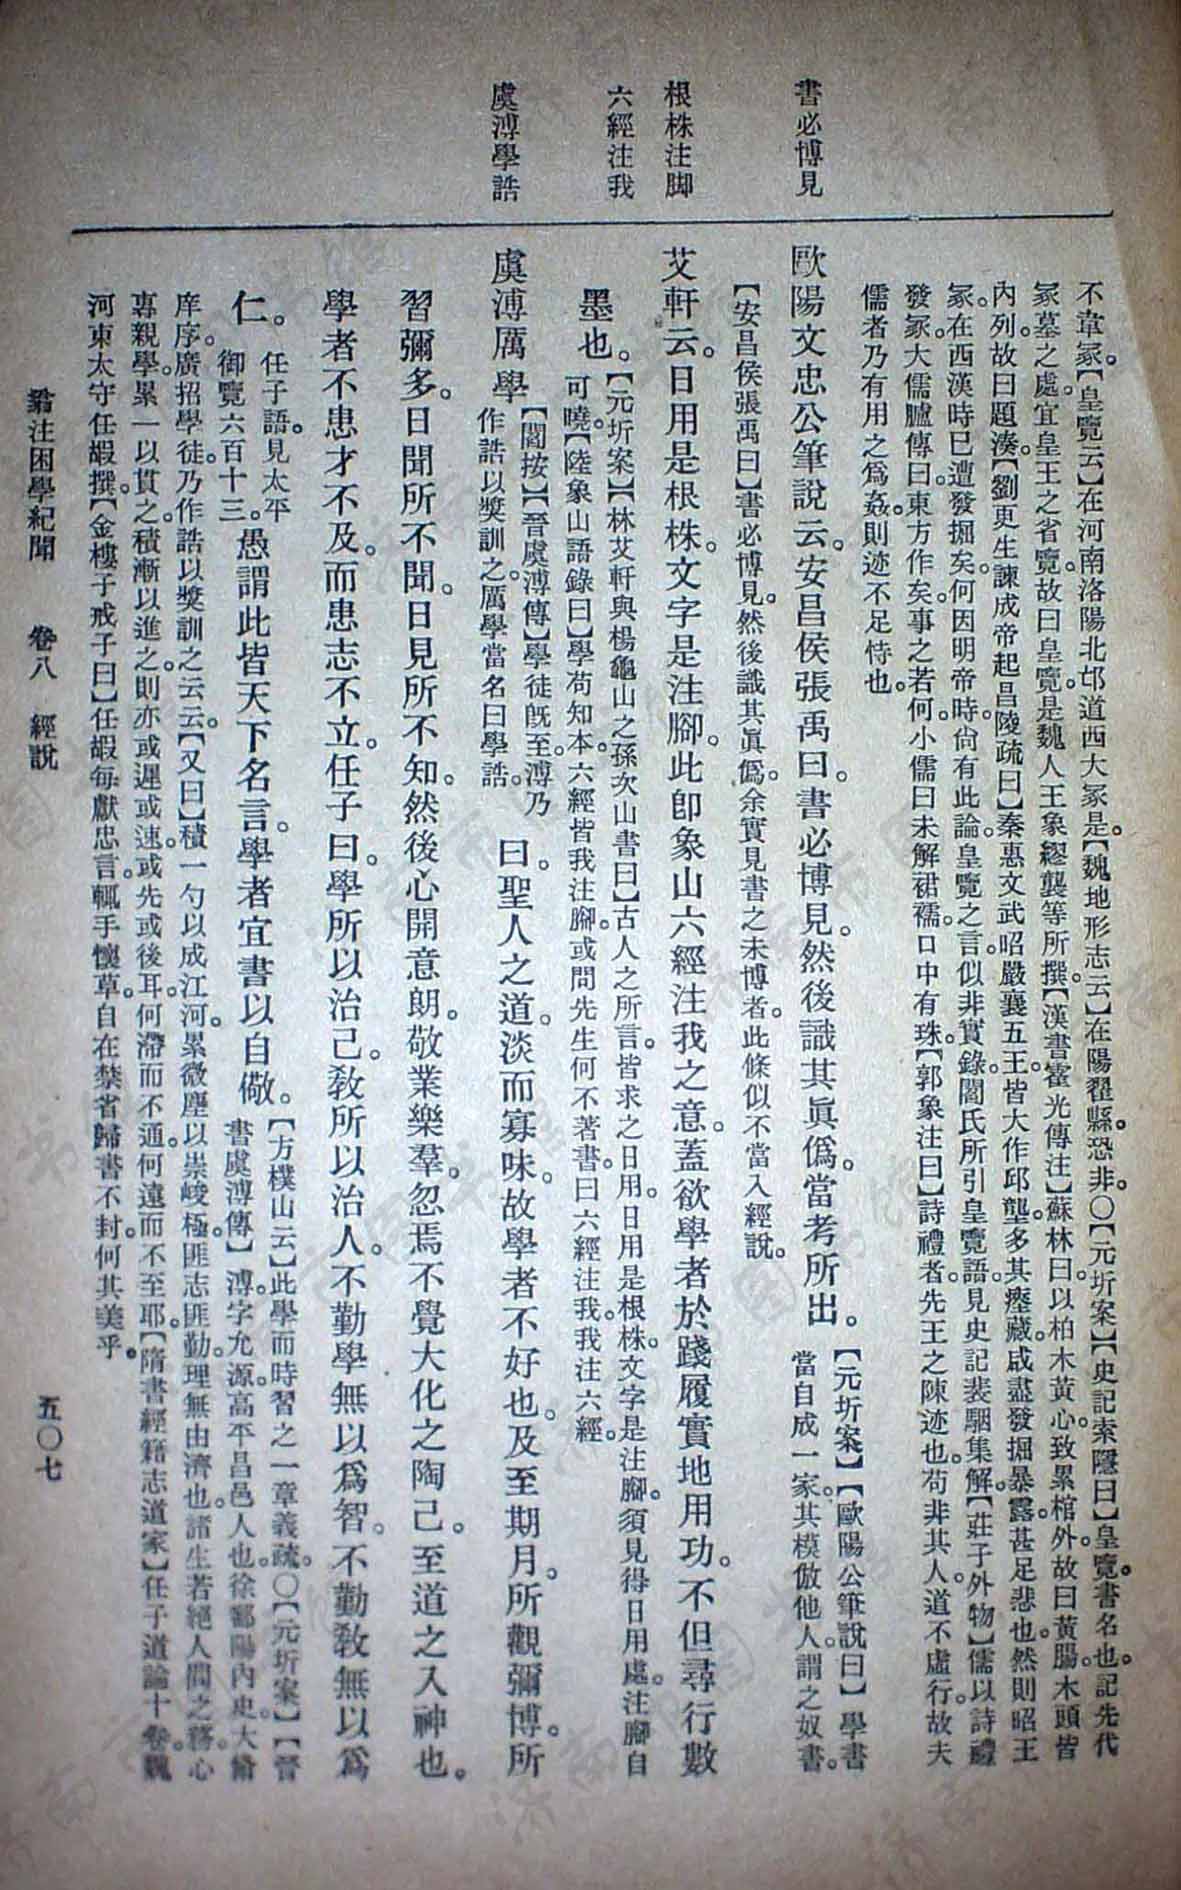 書必博見
根株注脚
六經注我
虞溥學誥
不韋冢。【皇覽云】在河南洛陽北邙道西大冢是。【魏地形志云】在陽翟縣。恐非。〇【元圻案】【史記索隱曰】皇覽。書名也。記先代
冢墓之處。宜皇王之省覽。故曰皇覽。是魏人王象繆襲等所撰。【漢書霍光傳注】蘇林曰。以柏木黃心。致累棺外。故曰黃腸。木頭皆
內列。故曰題湊。【劉更生諫成帝起昌陵疏曰】秦惠文武昭嚴襄五王。皆大作邱壟。多其瘞藏。咸盡發掘暴露。甚足悲也。然則昭王
冢。在西漢時已遭發掘矣。何因明帝時。尙有此論。皇覽之言。似非實錄。閻氏所引皇覽語。見史記裴駰集解。【莊子外物】儒以詩禮
發冢。大儒臚傳曰。東方作矣。事之若何。小儒曰。未解裙襦。口中有珠。【郭象注曰】詩禮者。先王之陳迹也。苟非其人。道不虛行。故夫
儒者乃有用之爲姦。則迹不足恃也。
歐陽文忠公筆說云。安昌侯張禹曰。書必博見。然後識其眞僞。當考所出。【元圻案】【歐陽公筆說曰】學書
當自成一家。其模倣他人。謂之奴書。
【安昌侯張禹曰】書必博見。然後識其眞僞。余實見書之未博者。此條似不當入經說。
艾軒云。日用是根株。文字是注腳。此卽象山六經注我之意。蓋欲學者於踐履實地用功。不但尋行數
墨也。【元圻案】【林艾軒與楊龜山之孫次山書曰】古人之所言。皆求之日用。日用是根株。文字是注腳。須見得日用處。注腳自
可曉。【陸象山語錄曰】學苟知本。六經皆我注腳。或問先生何不著書。曰六經注我。我注六經。
虞溥厲學【閻按】【晉虞溥傳】學徒旣至。溥乃
作誥以獎訓之。厲學當名曰學誥。曰。聖人之道。淡而寡味。故學者不好也。及至期月。所觀彌博。所
習彌多。日聞所不聞。日見所不知。然後心開意朗。敬業樂羣。忽焉不覺大化之陶己。至道之入神也。
學者不患才不及。而患志不立。任子曰。學所以治己。敎所以治人。不勤學無以爲智。不勤敎無以爲
仁。任子語。見太平
御覽六百十三。愚謂此皆天下名言。學者宜書以自儆。【方樸山云】此學而時習之一章義疏。〇【元圻案】【晉
書虞溥傳】溥字允源。高平昌邑人也。徐鄱陽內史。大脩
庠序。廣招學徒。乃作誥以獎訓之云云。【又曰】積一勺以成江河。累微塵以崇峻極。匪志匪勤。理無由濟也。諸生若絕人間之務。心
專親學。累一以貫之。積漸以進之。則亦或遲或速。或先或後耳。何滯而不通。何遠而不至耶。【隋書經籍志道家】任子道論十卷。魏
河東太守任嘏撰。【金樓子戒子曰】任嘏每獻忠言。輒手懷草。自在禁省。歸書不封。何其美乎。
翁注困學紀聞　卷八　經說　五〇七